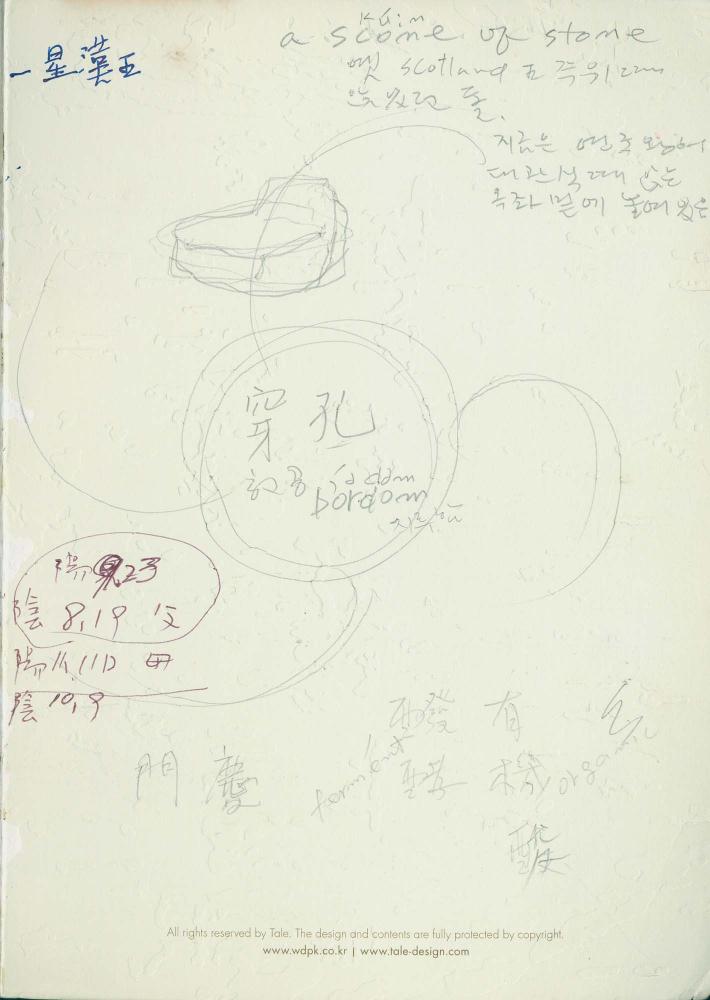 一星漢王
Kùin
a scone of stone
옛 scotland 王 즉위 때
앉았던 돌.
지금은 연국 왕이
대관식 때 앉는
옥좌 밑에 놓여 있은
穿孔
허공
bordom
지루함
陽 23
陰 8,19 父
陽 11,11 母
陰 10,9
醱 有
ferment 酵 機 organic
門 慶
酸
All rights reserved by Tale. The design and contents are fully protected by copyright.
www.wdpk.co.kr | www.tale-design.com